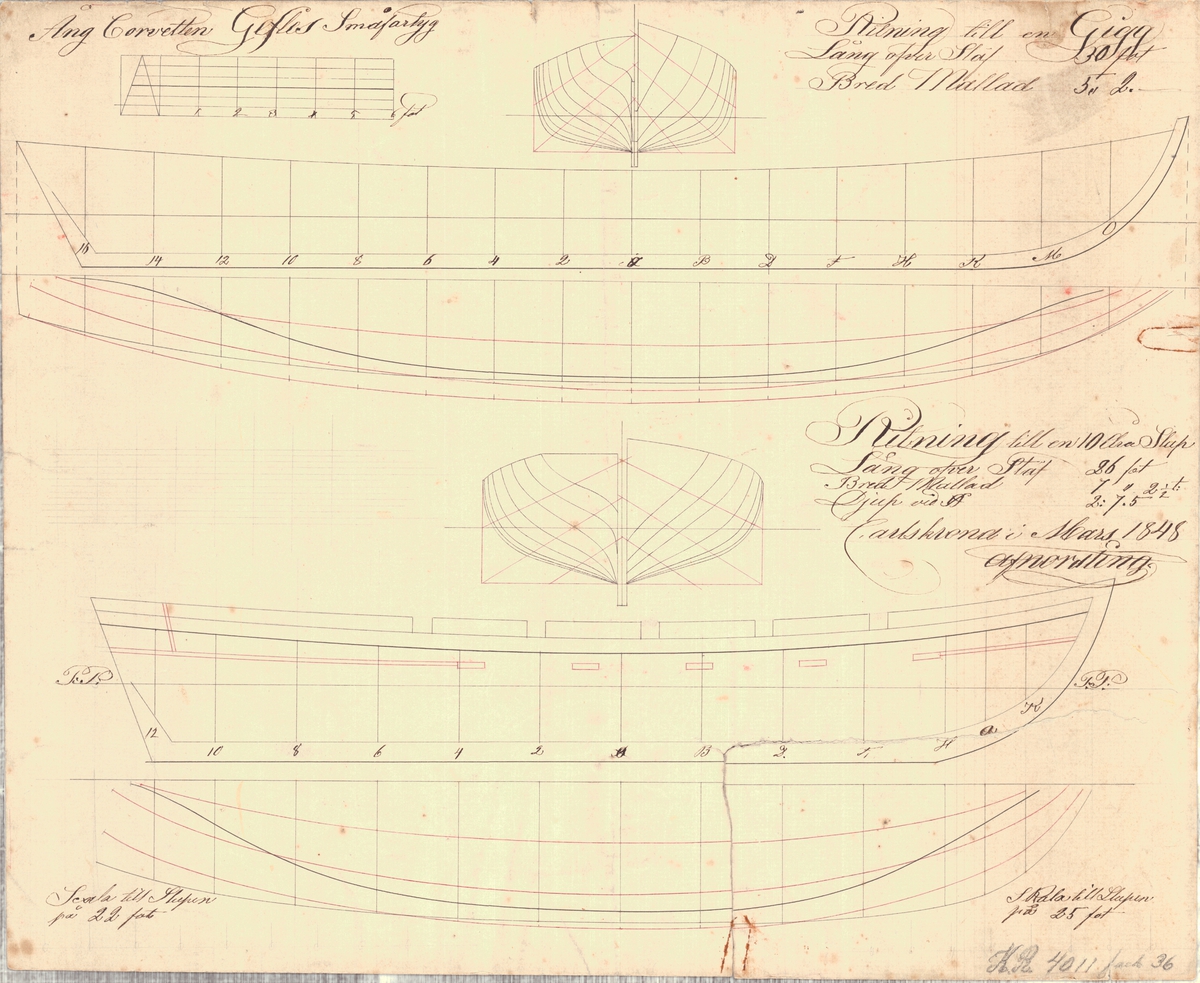 Ång Corvetten Gefles Småfartyg
1 2 3 4 5 6 fot
Ritning till en Gigg
Lång öfver Stäf 30 fot
Bred Mallad 5„ 2.
16 14 12 10 8 6 4 2 B D F H K M O
Ritning till en 10 Slup
Lång öfver Stäf 26 fot
Bred Mallad 7 „ 2 1/2 t:
Djup vid 2: 7.5
Carlskrona i Mars 1848
T.P. T.P.
12 10 8 6 4 2 B D F H a K
Scala till Slupen
på 22 fot
Skala till Slupen
på 25 fot
K.R. 4011 fack 36